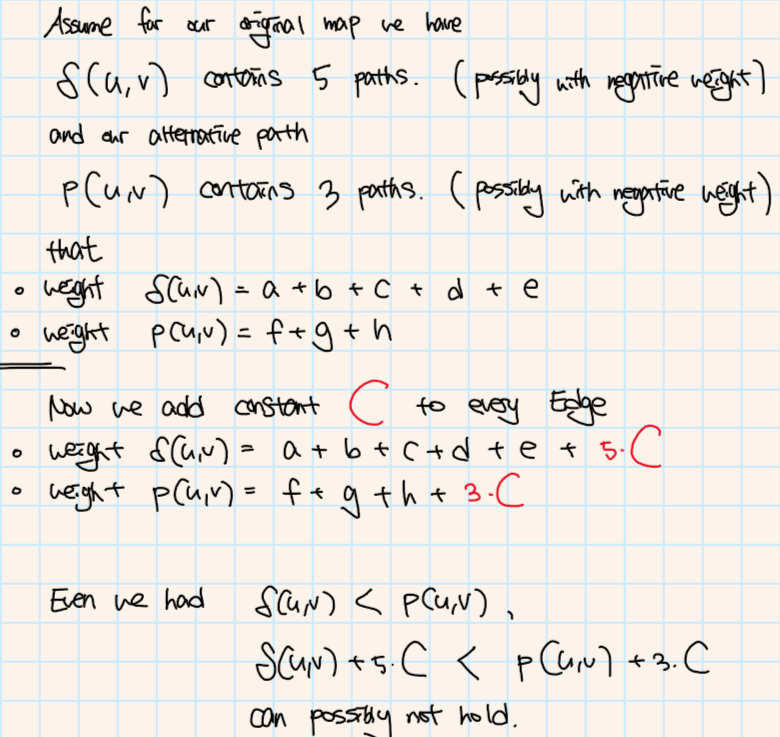 Assume for our original map we have
δ(u,v) contains 5 paths. (possibly with negative weight)
and our alternative path
p(u,v) contains 3 paths. (possibly with negative weight)
that
• weight δ(u,v) = a + b + c + d + e
• weight p(u,v) = f + g + h
Now we add constant C to every Edge
• weight δ(u,v) = a + b + c + d + e + 5·C
• weight p(u,v) = f + g + h + 3·C
Even we had δ(u,v) < p(u,v),
δ(u,v) + 5·C < p(u,v) + 3·C
can possibly not hold.